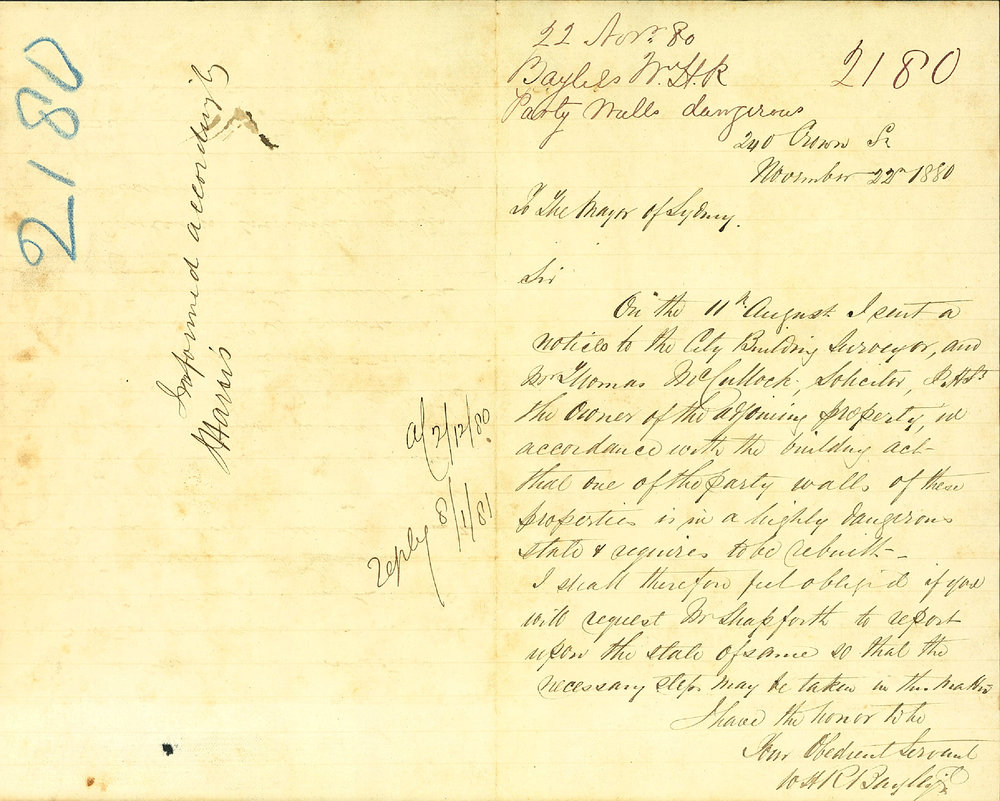 2180
Informed accordingly
Harris
a/ 2/12/80
reply 8/1/81
22 Novr. 80
Bayliss W.H.R
2180
Party Walls dangerous
240 Crown St
November 22nd 1880
To The Mayor of Sydney.
Sir
On the 11th August I sent a
notices to the City Building Surveyor, and
Mr Thomas McCullock, Solicitor,
the owner of the adjoining property, in
accordance with the building act
that one of the party walls of these
properties is in a highly dangerous
state & requires to be rebuilt
I shall therefore feel obliged if you
will request Mr Shapforth to report
upon the state of same so that the
necessary steps may be taken in this matter
I have the honor to be
Your Obedient Servant
W H R